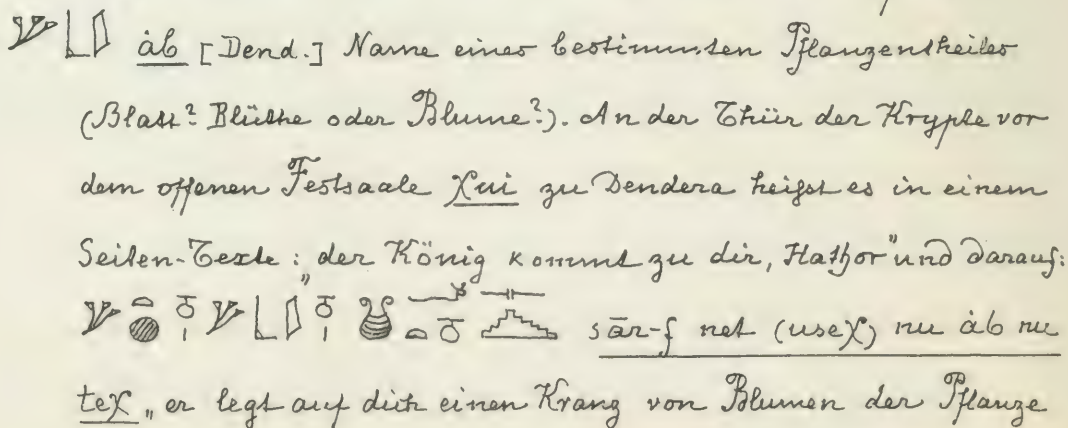 ȧb [Dend.] Name eines bestimmten Pflanzentheiles
(Blatt? Blüthe oder Blume?). An der Thür der Krypte vor
dem offenen Festsaale χui zu Dendera heißt es in einem
Seiten-Texte: „der König kommt zu dir, Hathor" und darauf:
sār-f net (useχ) nu ȧb nu
teχ „er legt auf dich einen Kranz von Blumen der Pflanze